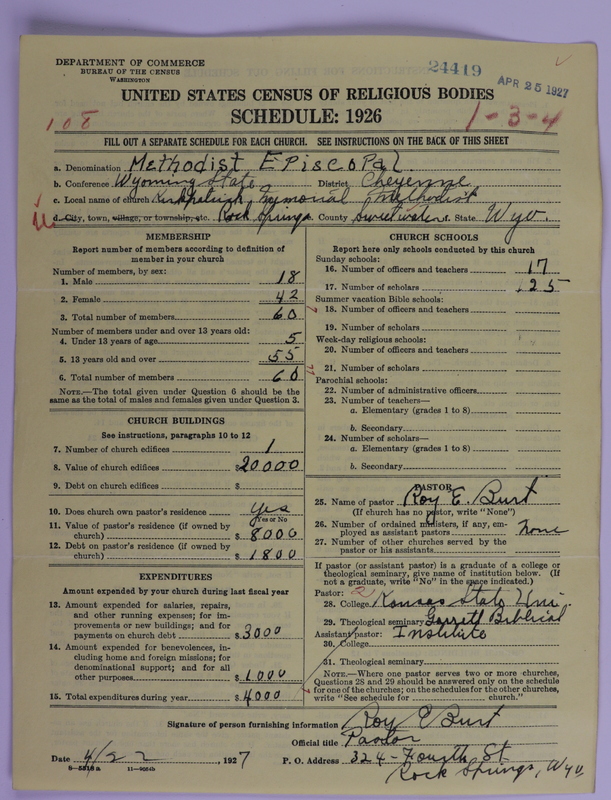 DEPARTMENT OF COMMERCE
BUREAU OF THE CENSUS
WASHINGTON
24419
APR 25 1927
UNITED STATES CENSUS OF RELIGIOUS BODIES
108
SCHEDULE: 1926
1-3-4
FILL OUT A SEPARATE SCHEDULE FOR EACH CHURCH. SEE INSTRUCTIONS ON THE BACK OF THIS SHEET
a. Denomination Methodist Episcopal
b. Conference Wyoming State District Cheyenne
c. Local name of church Memorial Methodist
d. City, town, village, or township, etc. Rock Springs County Sweetwater State Wyo.
MEMBERSHIP
Report number of members according to definition of member in your church
Number of members, by sex:
1. Male 18
2. Female 42
3. Total number of members 60
Number of members under and over 13 years old:
4. Under 13 years of age 5
5. 13 years old and over 55
6. Total number of members 60
NOTE.—The total given under Question 6 should be the
same as the total of males and females given under Question 3.
CHURCH BUILDINGS
See instructions, paragraphs 10 to 12
7. Number of church edifices 1
8. Value of church edifices $20000
9. Debt on church edifices $
10. Does church own pastor's residence Yes
Yes or No
11. Value of pastor's residence (if owned by
church) $8000
12. Debt on pastor's residence (if owned by
church) $1800
EXPENDITURES
Amount expended by your church during last fiscal year
13. Amount expended for salaries, repairs,
and other running expenses; for im-
provements or new buildings; and for
payments on church debt $3000
14. Amount expended for benevolences, in-
cluding home and foreign missions; for
denominational support; and for all
other purposes $1000
15. Total expenditures during year $4000
CHURCH SCHOOLS
Report here only schools conducted by this church
Sunday schools:
16. Number of officers and teachers 17
17. Number of scholars 125
Summer vacation Bible schools:
18. Number of officers and teachers
19. Number of scholars
Week-day religious schools:
20. Number of officers and teachers
21. Number of scholars
Parochial schools:
22. Number of administrative officers
23. Number of teachers—
a. Elementary (grades 1 to 8)
b. Secondary
24. Number of scholars—
a. Elementary (grades 1 to 8)
b. Secondary
PASTOR
25. Name of pastor Roy E. Burt
(If church has no pastor, write "None")
26. Number of ordained ministers, if any, em-
ployed as assistant pastors None
27. Number of other churches served by the
pastor or his assistants
If pastor (or assistant pastor) is a graduate of a college or
theological seminary, give name of institution below. (If
not a graduate, write "No" in the space indicated.)
Pastor:
28. College Kansas State Uni.
29. Theological seminary Garrett Biblical
Assistant pastor: Institute
30. College
31. Theological seminary
NOTE.—Where one pastor serves two or more churches,
Questions 28 and 29 should be answered only on the schedule
for one of the churches; on the schedules for the other churches,
write "See schedule for church."
Signature of person furnishing information Roy E Burt
Official title Pastor
Date 4/22, 1927 P. O. Address 324 - Fourth St
Rock Springs, Wyo.
8—5518a 11—9084b